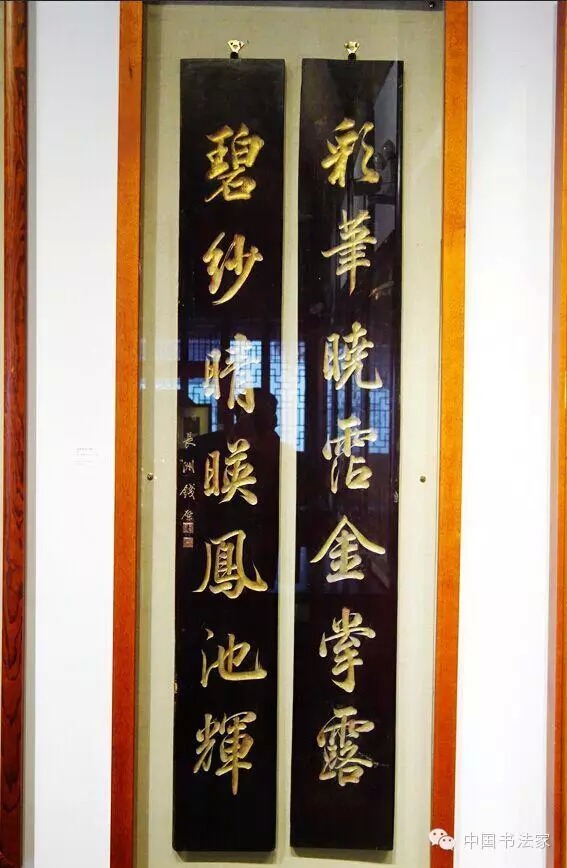 彩筆曉霑金掌露
碧紗晴暎鳳池輝
長洲錢棨
中国书法家